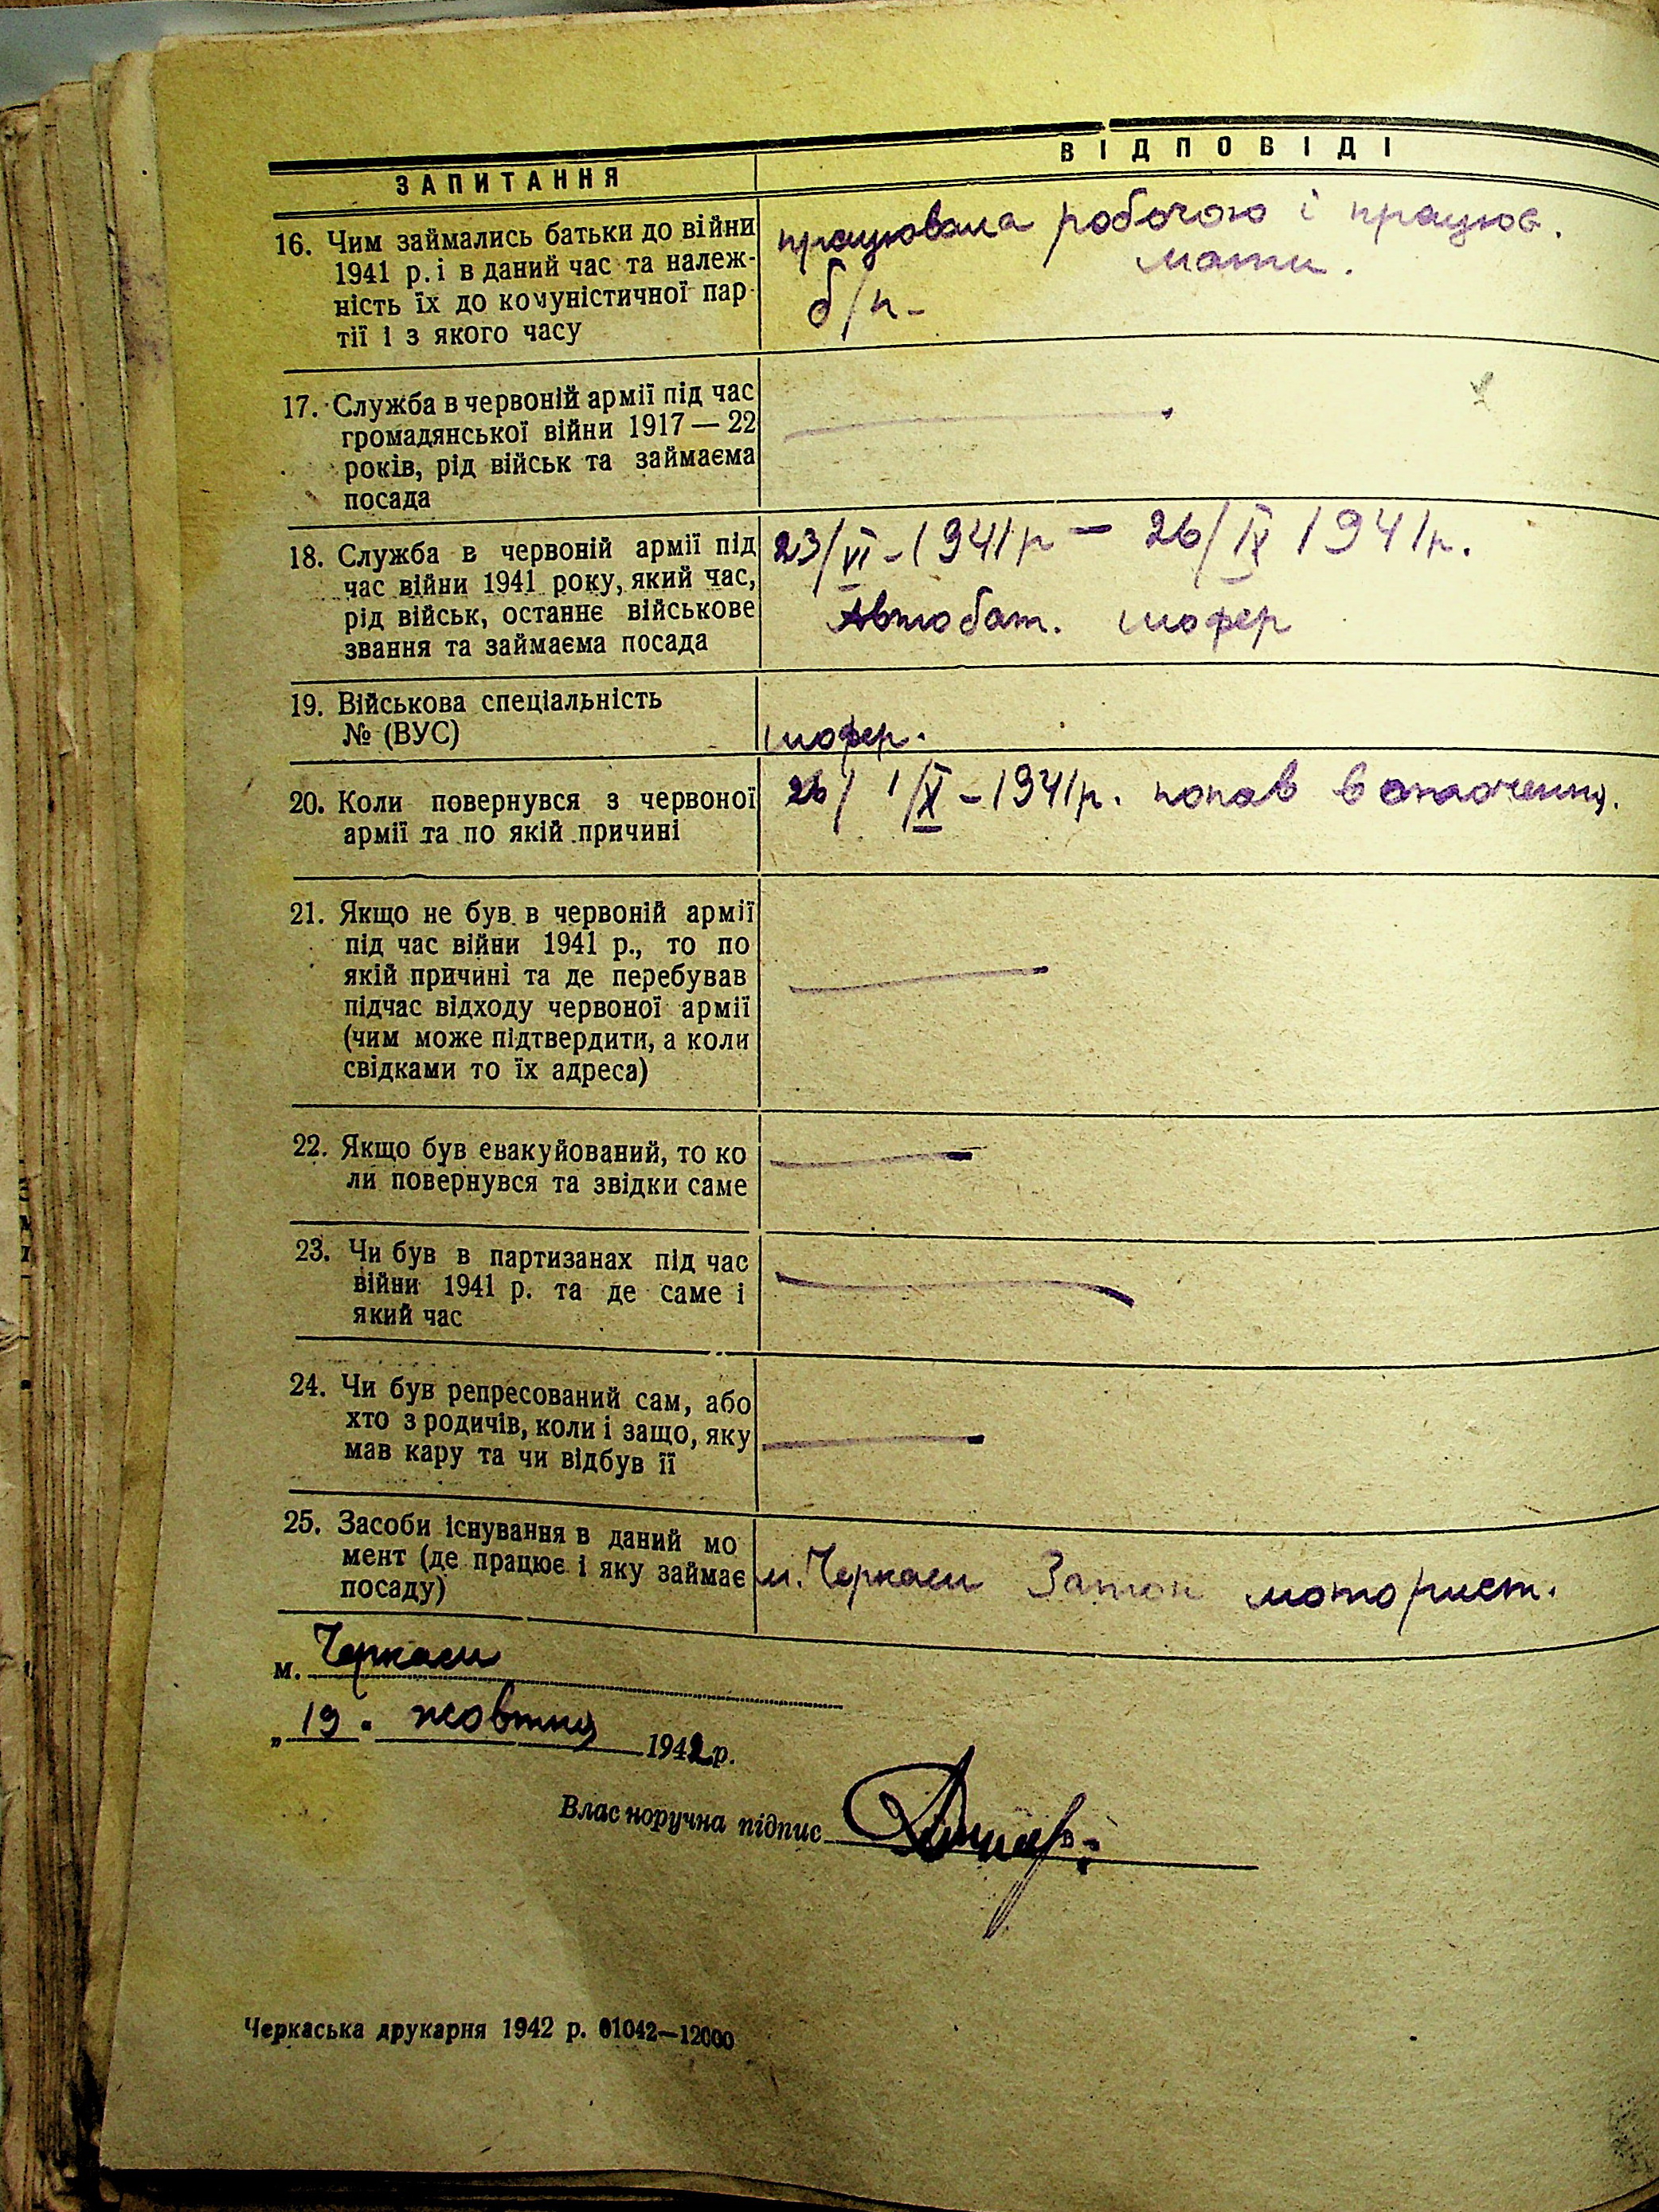 ЗАПИТАННЯ
ВІДПОВІДІ
16. Чим займались батьки до війни
1941 р. і в даний час та належ-
ність їх до комуністичної пар-
тії і з якого часу
працювала робочою і працює.
мати.
б/п-
17. Служба в червоній армії під час
громадянської війни 1917 — 22
років, рід військ та займаєма
посада
18. Служба в червоній армії під
час війни 1941 року, який час,
рід військ, останнє військове
звання та займаєма посада
23/VI-1941р — 26/IX 1941р.
Автобат. шофер
19. Військова спеціальність
№ (ВУС)
шофер.
20. Коли повернувся з червоної
армії та по якій причині
26/ 1/X-1941р. попав в оточення.
21. Якщо не був в червоній армії
під час війни 1941 р., то по
якій причині та де перебував
підчас відходу червоної армії
(чим може підтвердити, а коли
свідками то їх адреса)
22. Якщо був евакуйований, то ко
ли повернувся та звідки саме
23. Чи був в партизанах під час
війни 1941 р. та де саме і
який час
24. Чи був репресований сам, або
хто з родичів, коли і защо, яку
мав кару та чи відбув її
25. Засоби існування в даний мо
мент (де працює і яку займає
посаду)
м. Черкаси Затон моторист.
м. Черкаси
„19" жовтня 1942р.
Власноручна підпис
Черкаська друкарня 1942 р. 01042—12000